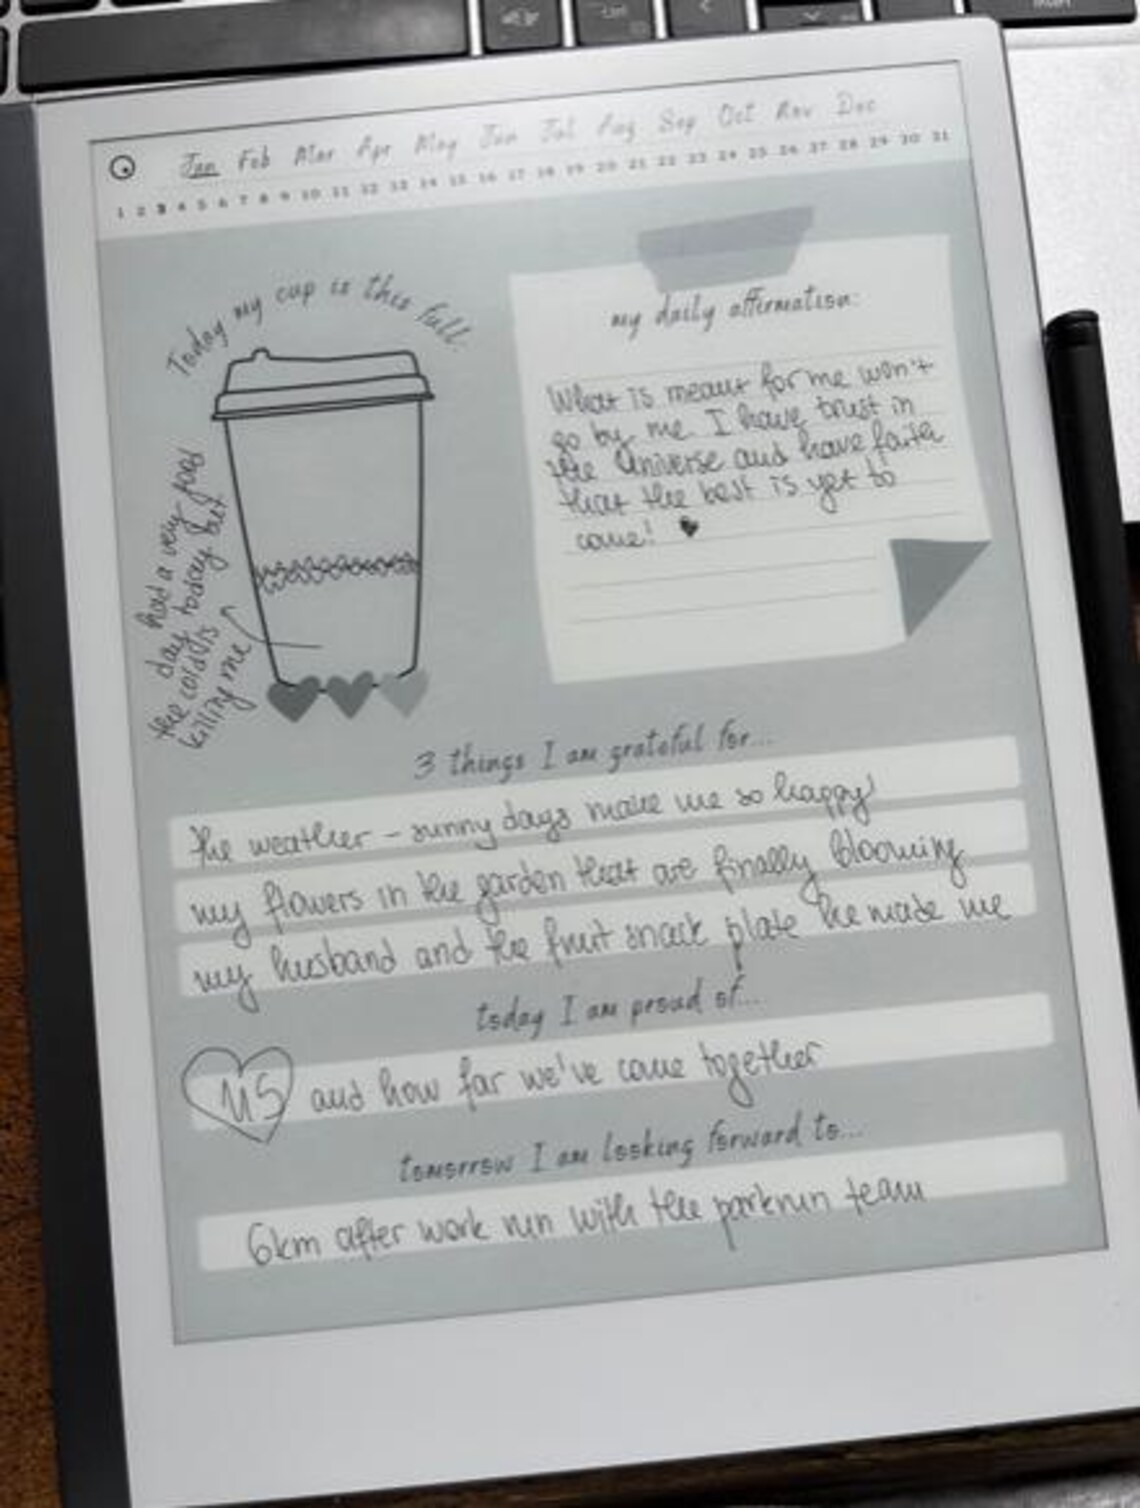 Jan Feb Mar Apr May Jun Jul Aug Sep Oct Nov Dec
1 2 3 4 5 6 7 8 9 10 11 12 13 14 15 16 17 18 19 20 21 22 23 24 25 26 27 28 29 30 31
Today my cup is this full.
had a very good
day today but
the cold is
killing me
my daily affirmation:
What is meant for me won't
go by me. I have trust in
the Universe and have faith
that the best is yet to
come!
3 things I am grateful for...
the weather - sunny days make me so happy!
my flowers in the garden that are finally blooming
my husband and the fruit snack plate he made me
today I am proud of...
US and how far we've come together
tomorrow I am looking forward to...
6km after work run with the parkrun team